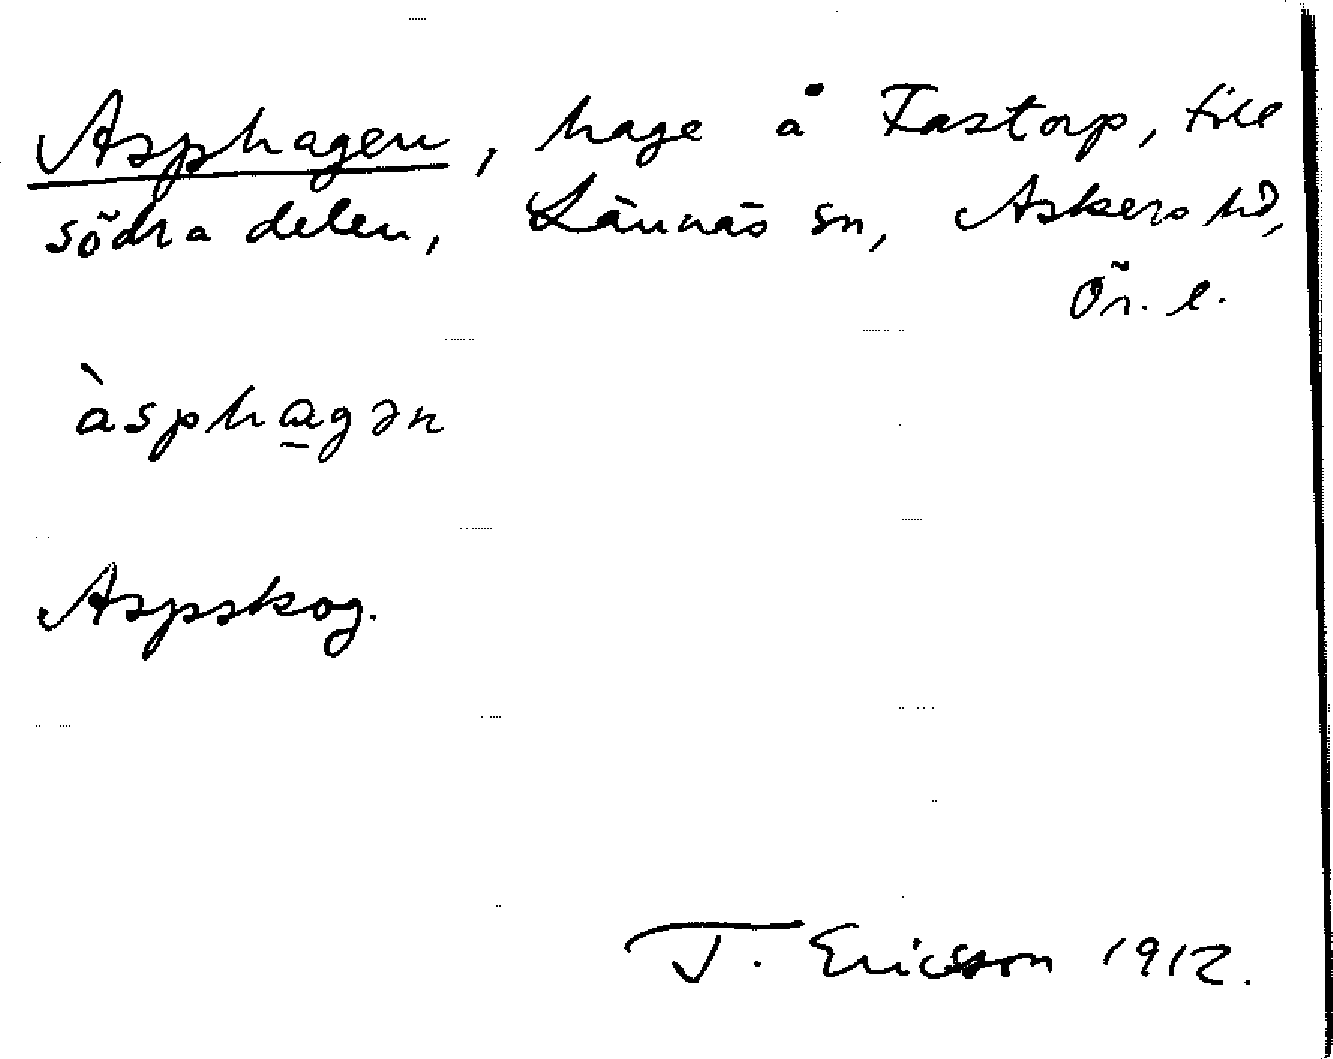 Asphagen, hage å Fastorp, till
södra delen, Lännäs sn, Askers hd,
Ör. l.
àsphagən
Aspskog.
T. Ericsson 1912.